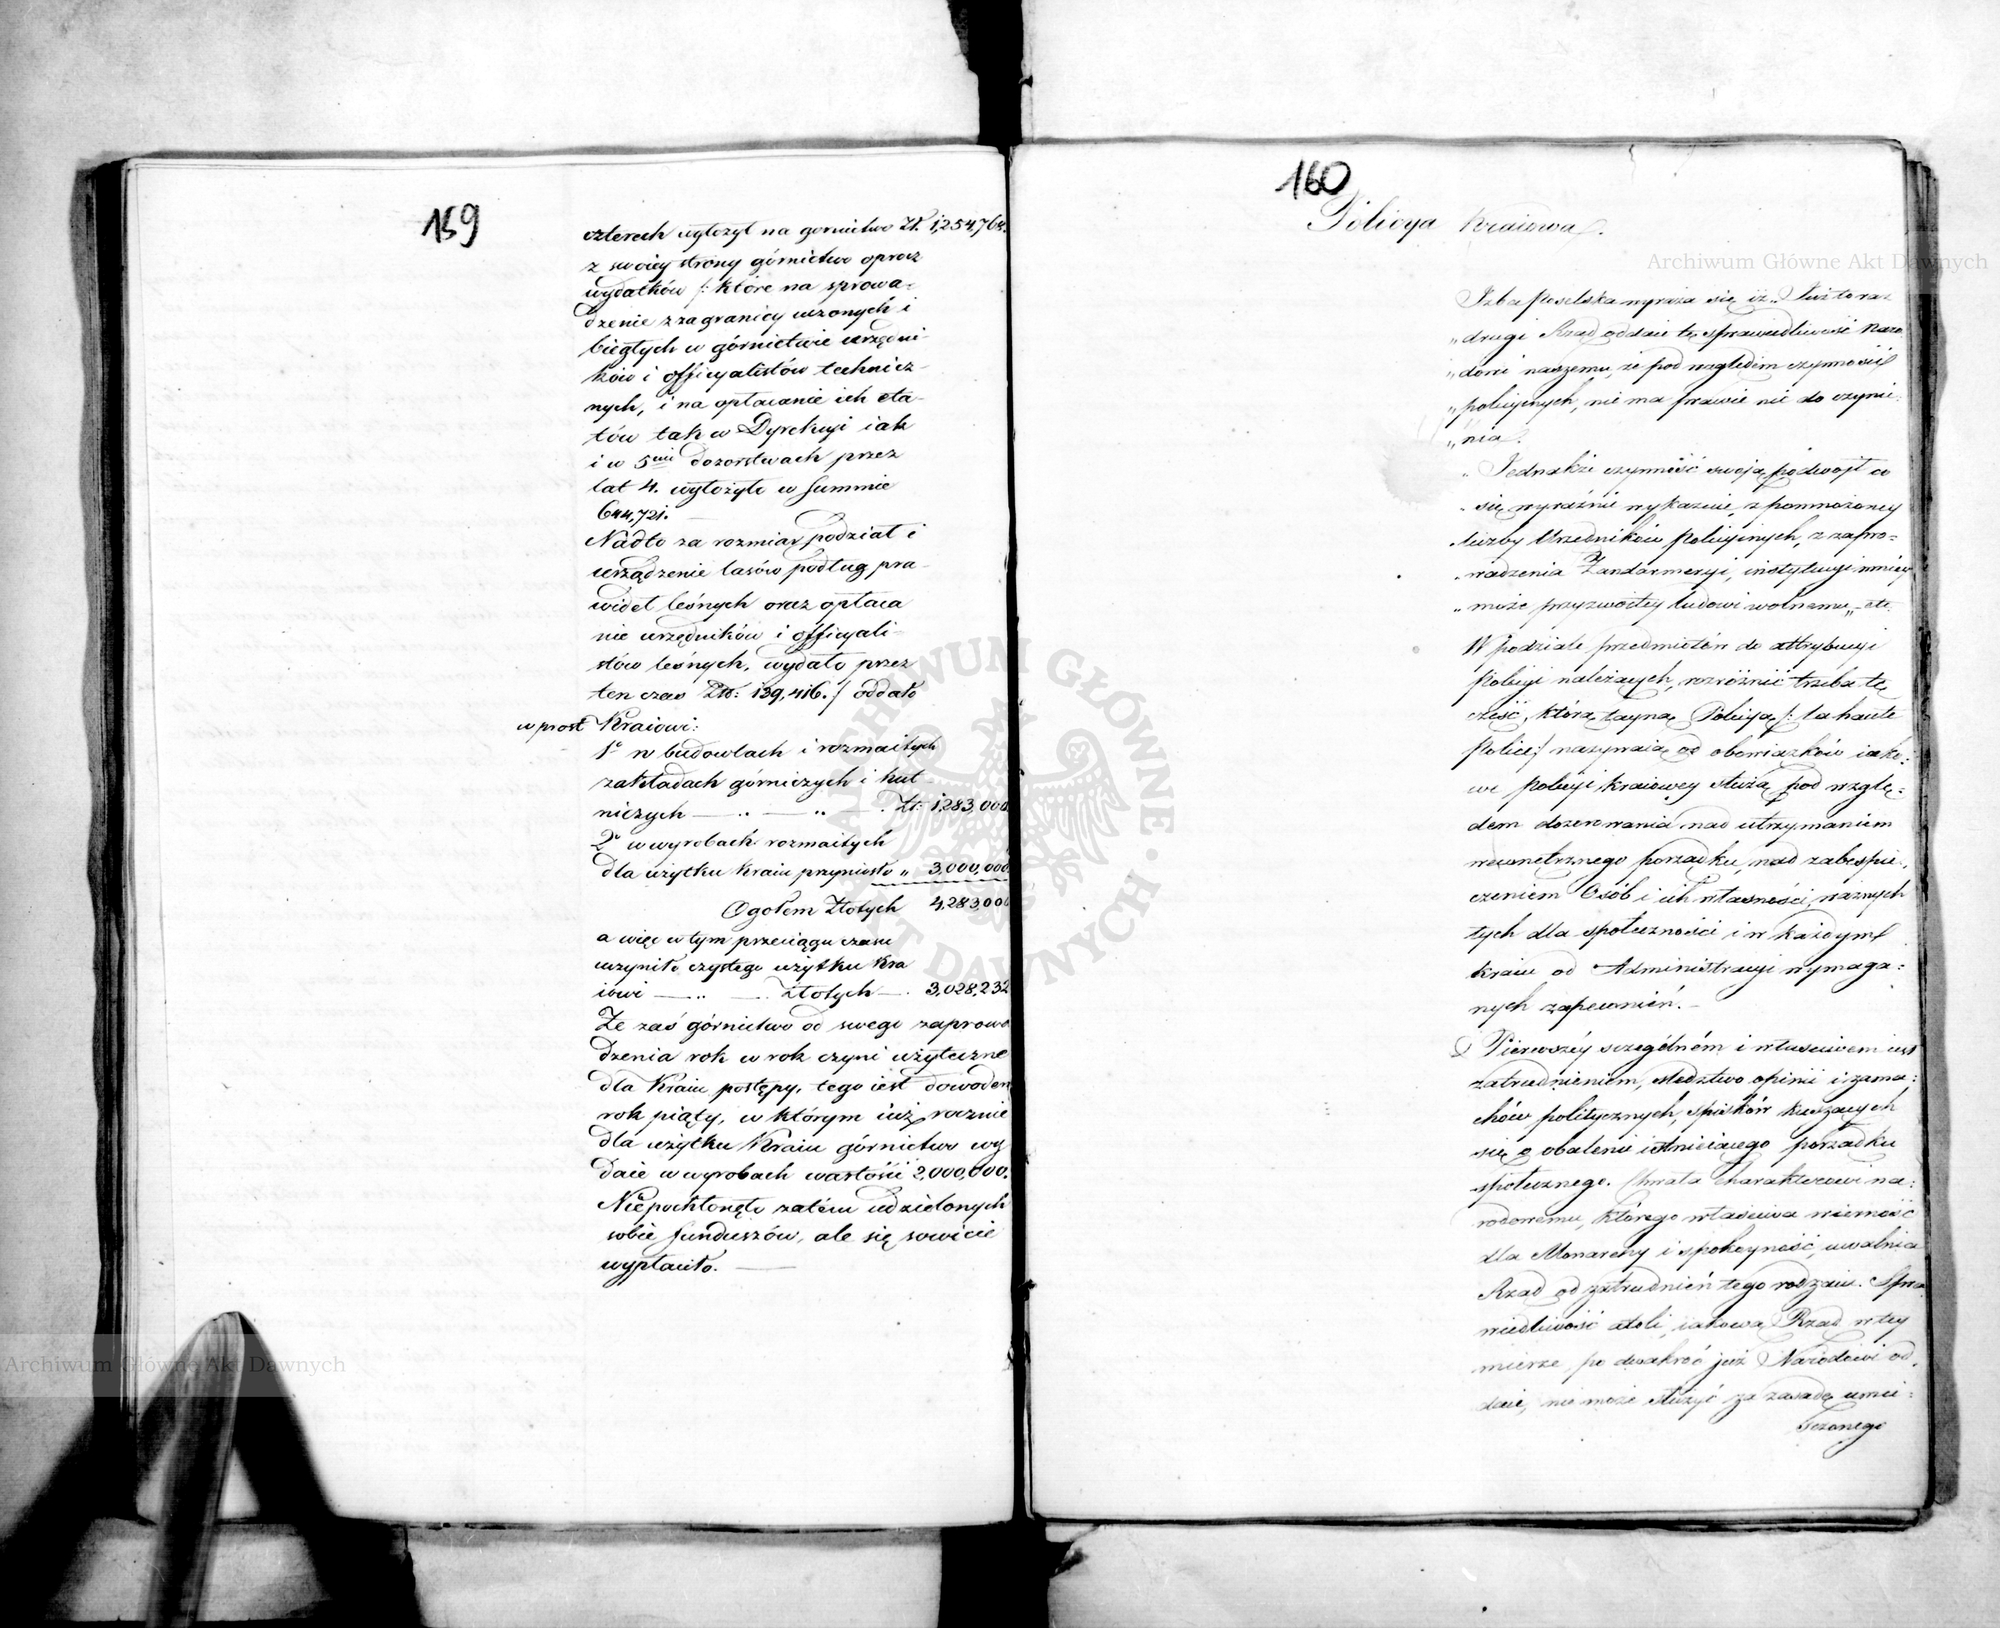 159
czterech wyłożył na gornictwo Zł. 1,254,768.
z swoiey strony górnictwo oprocz
wydatków /: które na sprowa-
dzenie z zagranicy uczonych i
biegłych w górnictwie urzędni-
ków i officyalistów technicz-
nych, i na opłacanie ich eta-
tów tak w Dyrekcyi iak
i w 5ciu dozorstwach przez
lat 4. wyłożyło w Summie
644,721.
Nadto za rozmiar podział i
urządzenie lasów podług pra-
wideł leśnych oraz opłaca
nie urzędników i officyali-
stów leśnych, wydało przez
ten czas Zł: 139,416. :/ oddało
wprost Kraiowi:
1o w budowlach i rozmaitych
zakładach górniczych i hut-
niczych — „ — „ . Zł: 1,283,000
2o w wyrobach rozmaitych
dla użytku Kraiu przyniosło „ 3,000,000.
Ogołem Złotych 4,283,000
a więc w tym przeciągu czasu
uczyniło czystego użytku Kra
iowi — „ — . Złotych — . 3,028,232
Że zaś górnictwo od swego zaprowa
dzenia rok w rok czyni użyteczne
dla Kraiu postępy, tego iest dowodem
rok piąty, w którym iuż rocznie
dla użytku Kraiu górnictwo wy
daie w wyrobach wartość 2,000,000.
Niepochłonęło zatém udzielonych
sobie funduszów, ale się sowicie
wypłaciło. —
160
Policya Kraiowa.
Izba Poselska wyraża się iż „Już to raz
„drugi Rząd oddaie tę sprawiedliwość Naro
„dowi naszemu, że pod względem czynności
„policyinych, nie ma prawie nic do czynie-
„nia.
„Jednakże czynność swoią podwoił co
„się wyraźnie wykazuie, z pomnożoney
„liczby Urzędników Policyinych, z zapro-
„wadzenia Żandarmeryi, instytucyi mniey
„może przyzwoitey ludowi wolnemu„ etc
W podziale przedmiotów do attrybucyi
Policyi należących, rozróżnić trzeba tę
część, którą tayną Policyą /: la haute
Police :/ nazywaią od obowiązków iako-
we policyi kraiowey służą pod wzglę-
dem dozorowania nad utrzymaniem
wewnętrznego porządku, nad zabespie-
czeniem Osób i ich własności, ważnych
tych dla społeczności i w każdym
kraiu od Administracyi wymaga-
nych zapewnień. —
Pierwszéy szczególném i właściwem iest
zatrudnieniem, śledztwo opinii i zama-
chów politycznych, spisków kuszących
się o obalenie istnieiącego porządku
społecznego. Chwała Charakterowi na-
rodowemu, którego właściwa wierność
dla Monarchy i spokoyność, uwalnia
Rząd od zatrudnień tego rodzaiu. Spra
wiedliwość atoli, iakową Rząd w tey
mierze, po dwakroć już Narodowi od-
daie, nie może służyć za zasadę umie-
szczonego
Archiwum Główne Akt Dawnych
Archiwum Główne Akt Dawnych
ARCHIWUM GŁÓWNE AKT DAWNYCH